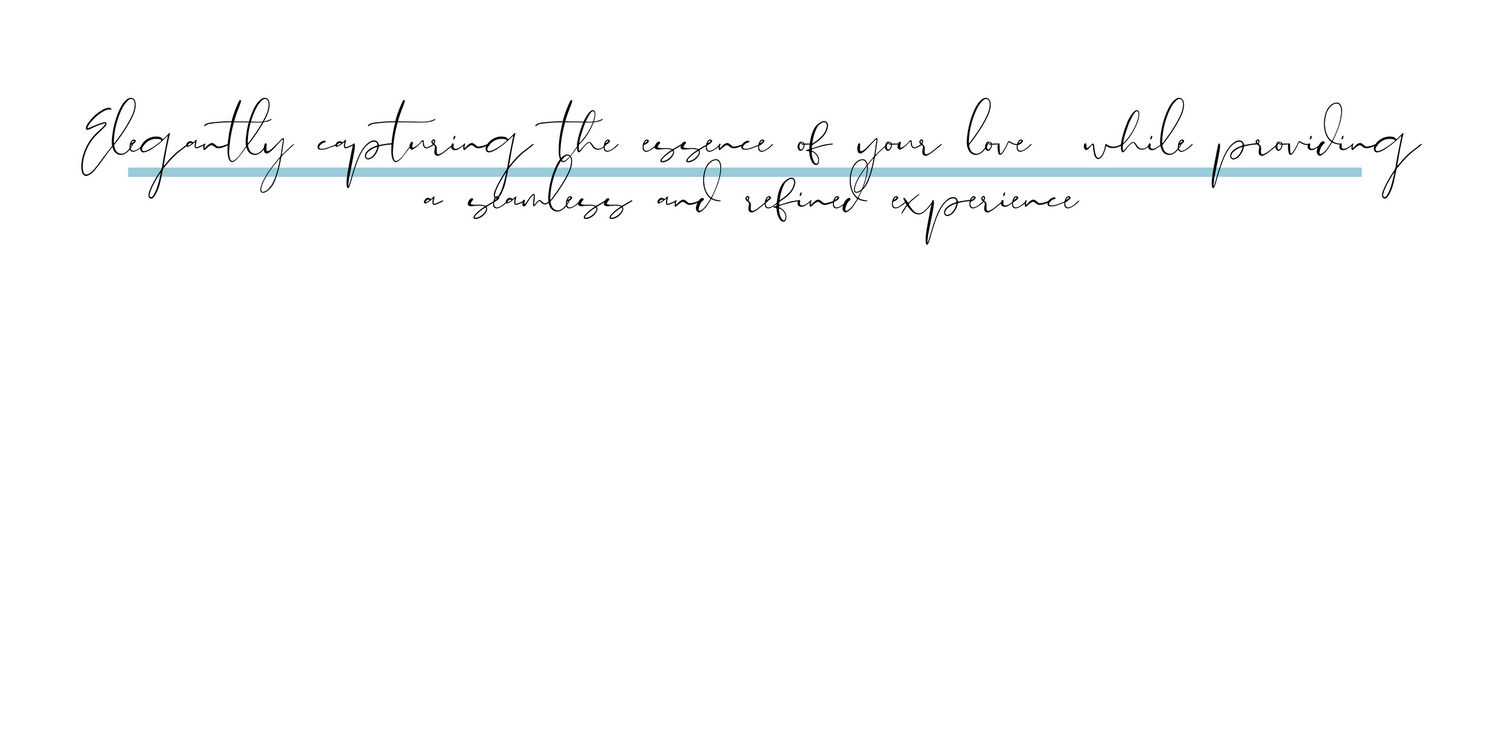 Elegantly capturing the essence of your love while providing
a seamless and refined experience